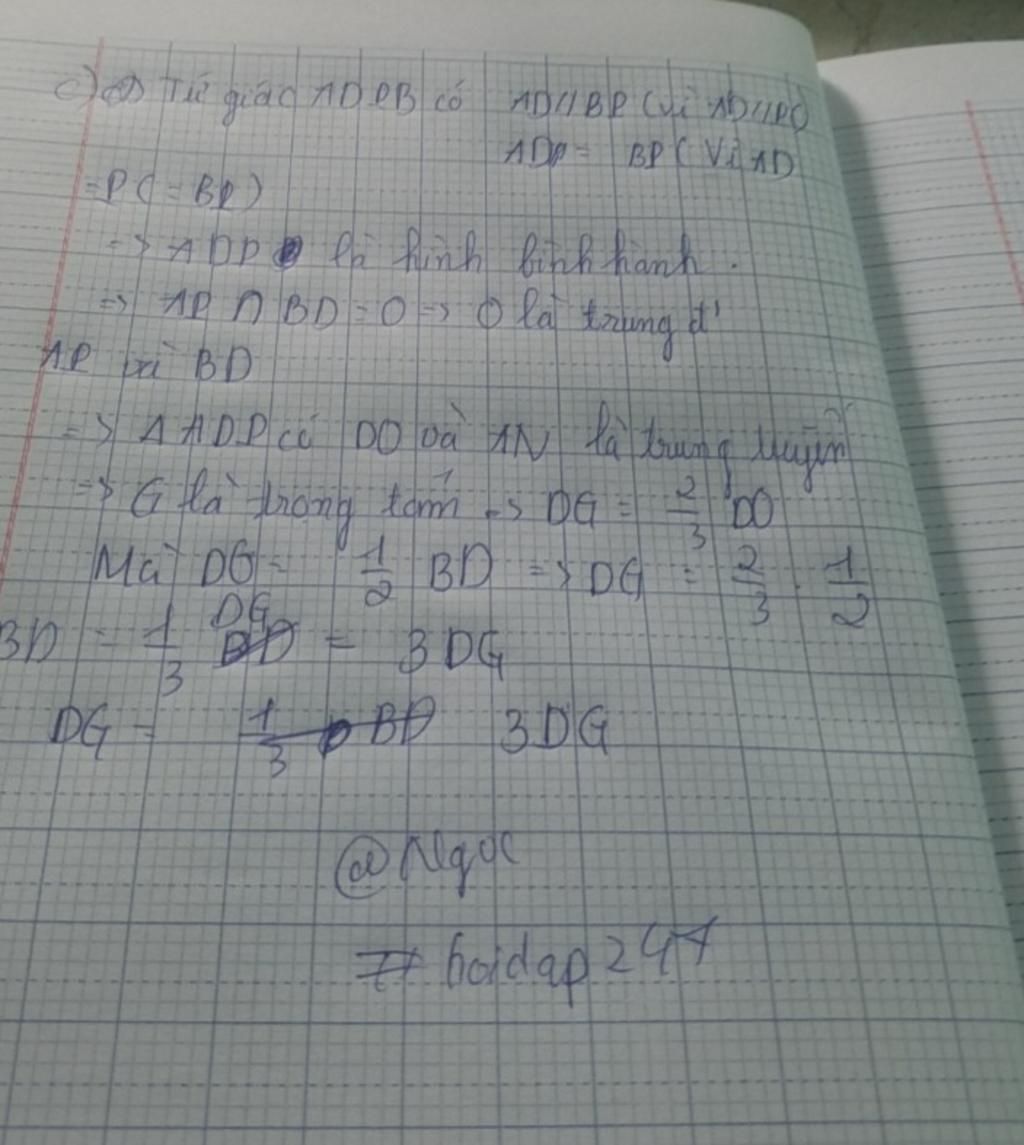 c) Tứ giác ADPB có AD//BP (vì AD//PC)
AD = BP ( Vì AD
=PC=BP)
=> ADPB là hình bình hành.
=> AP ∩ BD = O => O là trung đ'
AP và BD
=> Δ ADP có DO và AN là trung tuyến
=> G là trọng tâm => DG = 2/3 DO
Mà DG = 1/2 BD => DG = 2/3 . 1/2
BD = 1/3 DG = 3DG
DG = 3DG
@Ngoc
# hoidap247